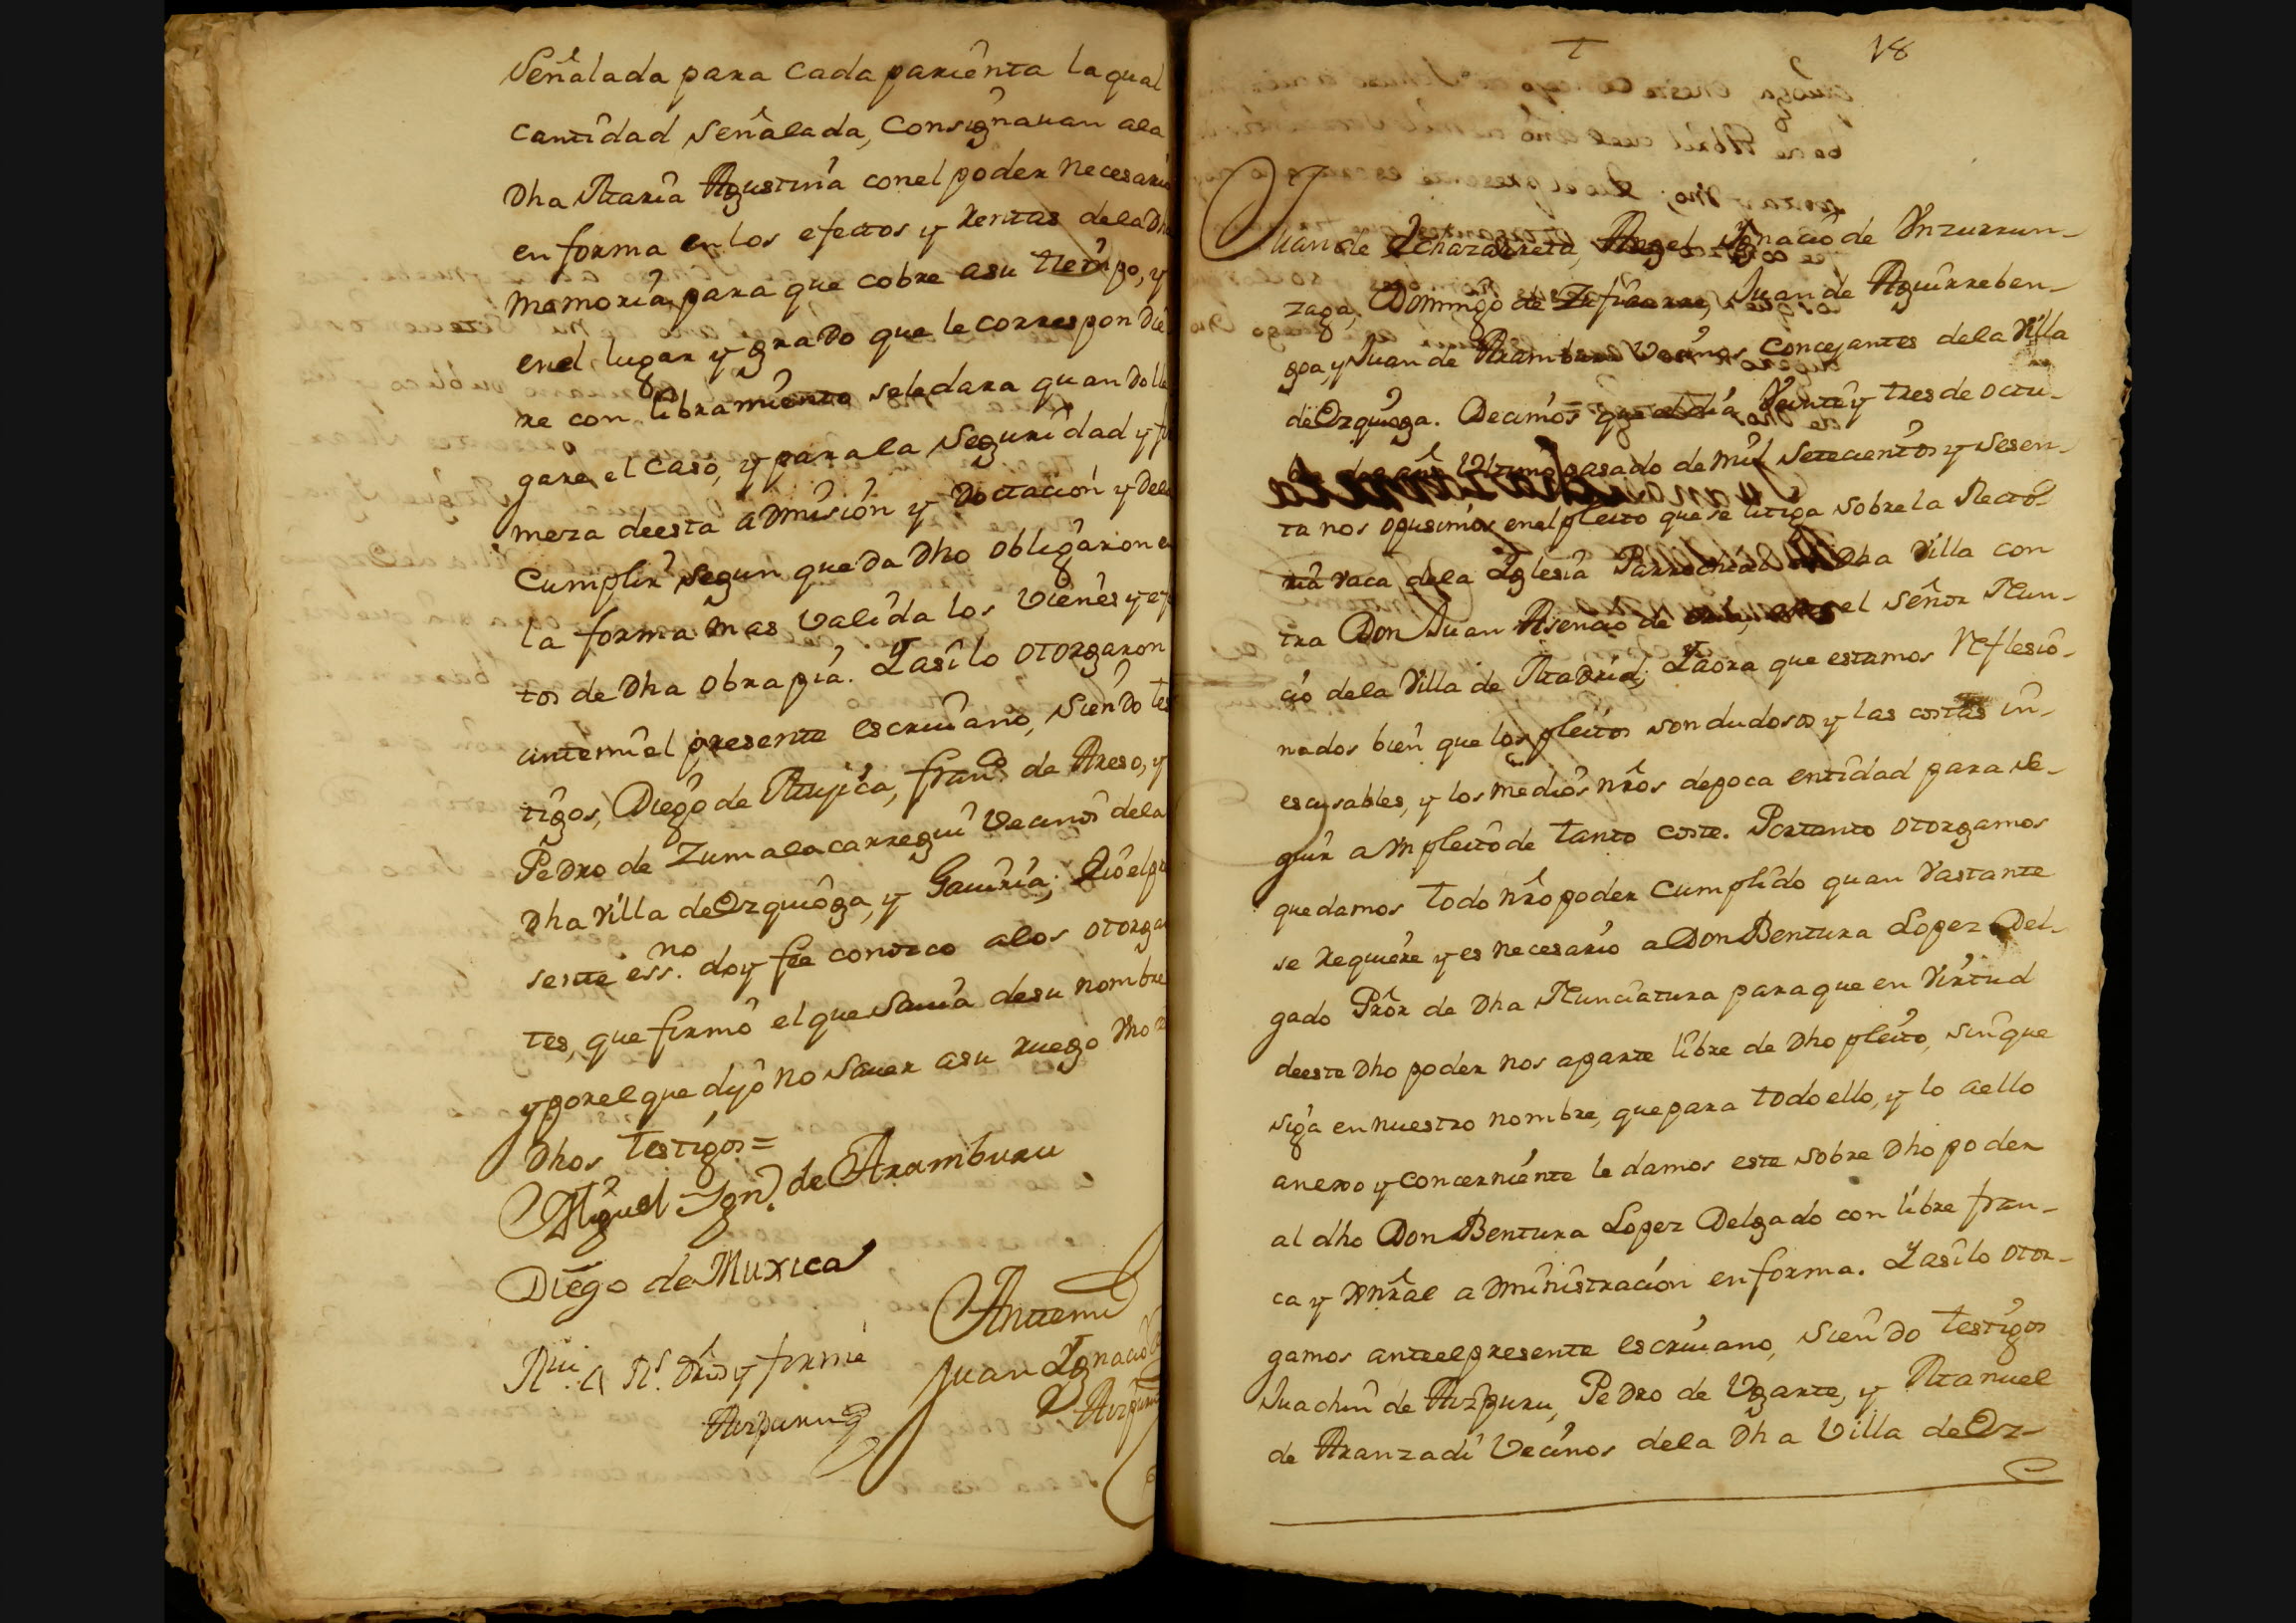 Señalada para cada parienta la qual
cantidad señalada, consignauan ala
Dha Maria Agustina con el poder necesario
en forma en los efectos y rentas dela Dha
memoria, para que cobre asu tiempo, y
en el lugar y grado que le correspondie
re con libramiento sele dara quando lle
gare el caso, y para la seguridad y fir
meza de esta admision y Doctacion y dela
Cumplir segun queda Dho obligaron en
la forma mas valida los vienes y efec
tos de Dha obra pia. Y asi lo otorgaron
antemi el presente escriuano, siendo tes
tigos, Diego de Mujica, Fran.co de Areso, y
Pedro de Zumalacarregui Vecinos dela
Dha Villa de Ozquioga, y Gauiria; Qio el pre
sente ess.no doy fee conozco alos otorgan
tes, que firmó el que sauia desu nombre
y por el que dijo no sauer asu ruego vno de
Dhos testigos=
Miguel Ign.o de Aramburu
Diego de Muxica
Antemi
Juan Ignacio de
Aizpuru
y firmé
Aizpuru
T 18
Juan de Echazarreta, Angel Ignacio de Ynzurrun-
zaga, Domingo de Zufiaurre, Juan de Aguirreben-
goa, y Juan de Aramburu Vecinos Concejantes dela Villa
de Ozquioga. Decimos que el dia Veinte y tres de octu-
bre de año Vltimo pasado de mil setecientos y sesen-
ta nos opusimos en el pleito que se litiga sobre la Recto-
ria vaca dela Yglesia Parrochial de Dha Villa con
tra Don Juan Asencio de el señor Nun-
cio dela Villa de Madrid; Y aora que estamos reflesio-
nados bien que los pleitos son dudosos y las costas in-
escusables, y los medios nros de poca entidad para se-
guir a vn pleito de tanto coste. Portanto otorgamos
que damos todo nro poder cumplido quan vastante
se requiere y es necesario a Don Bentura Lopez Del-
gado Pror de Dha Nunciatura para que en virtud
de este Dho poder nos aparte libre de Dho pleito, sin que
siga en nuestro nombre, que para todo ello, y lo aello
anexo y concerniente le damos este sobre Dho poder
al dho Don Bentura Lopez Delgado con libre fran-
ca y gnral administracion en forma. Y asi lo otor-
gamos ante el presente escriuano, siendo testigos
Juachin de Aizpuru, Pedro de Vgarte, y Manuel
de Aranzadi Vecinos dela Dha Villa de Oz-